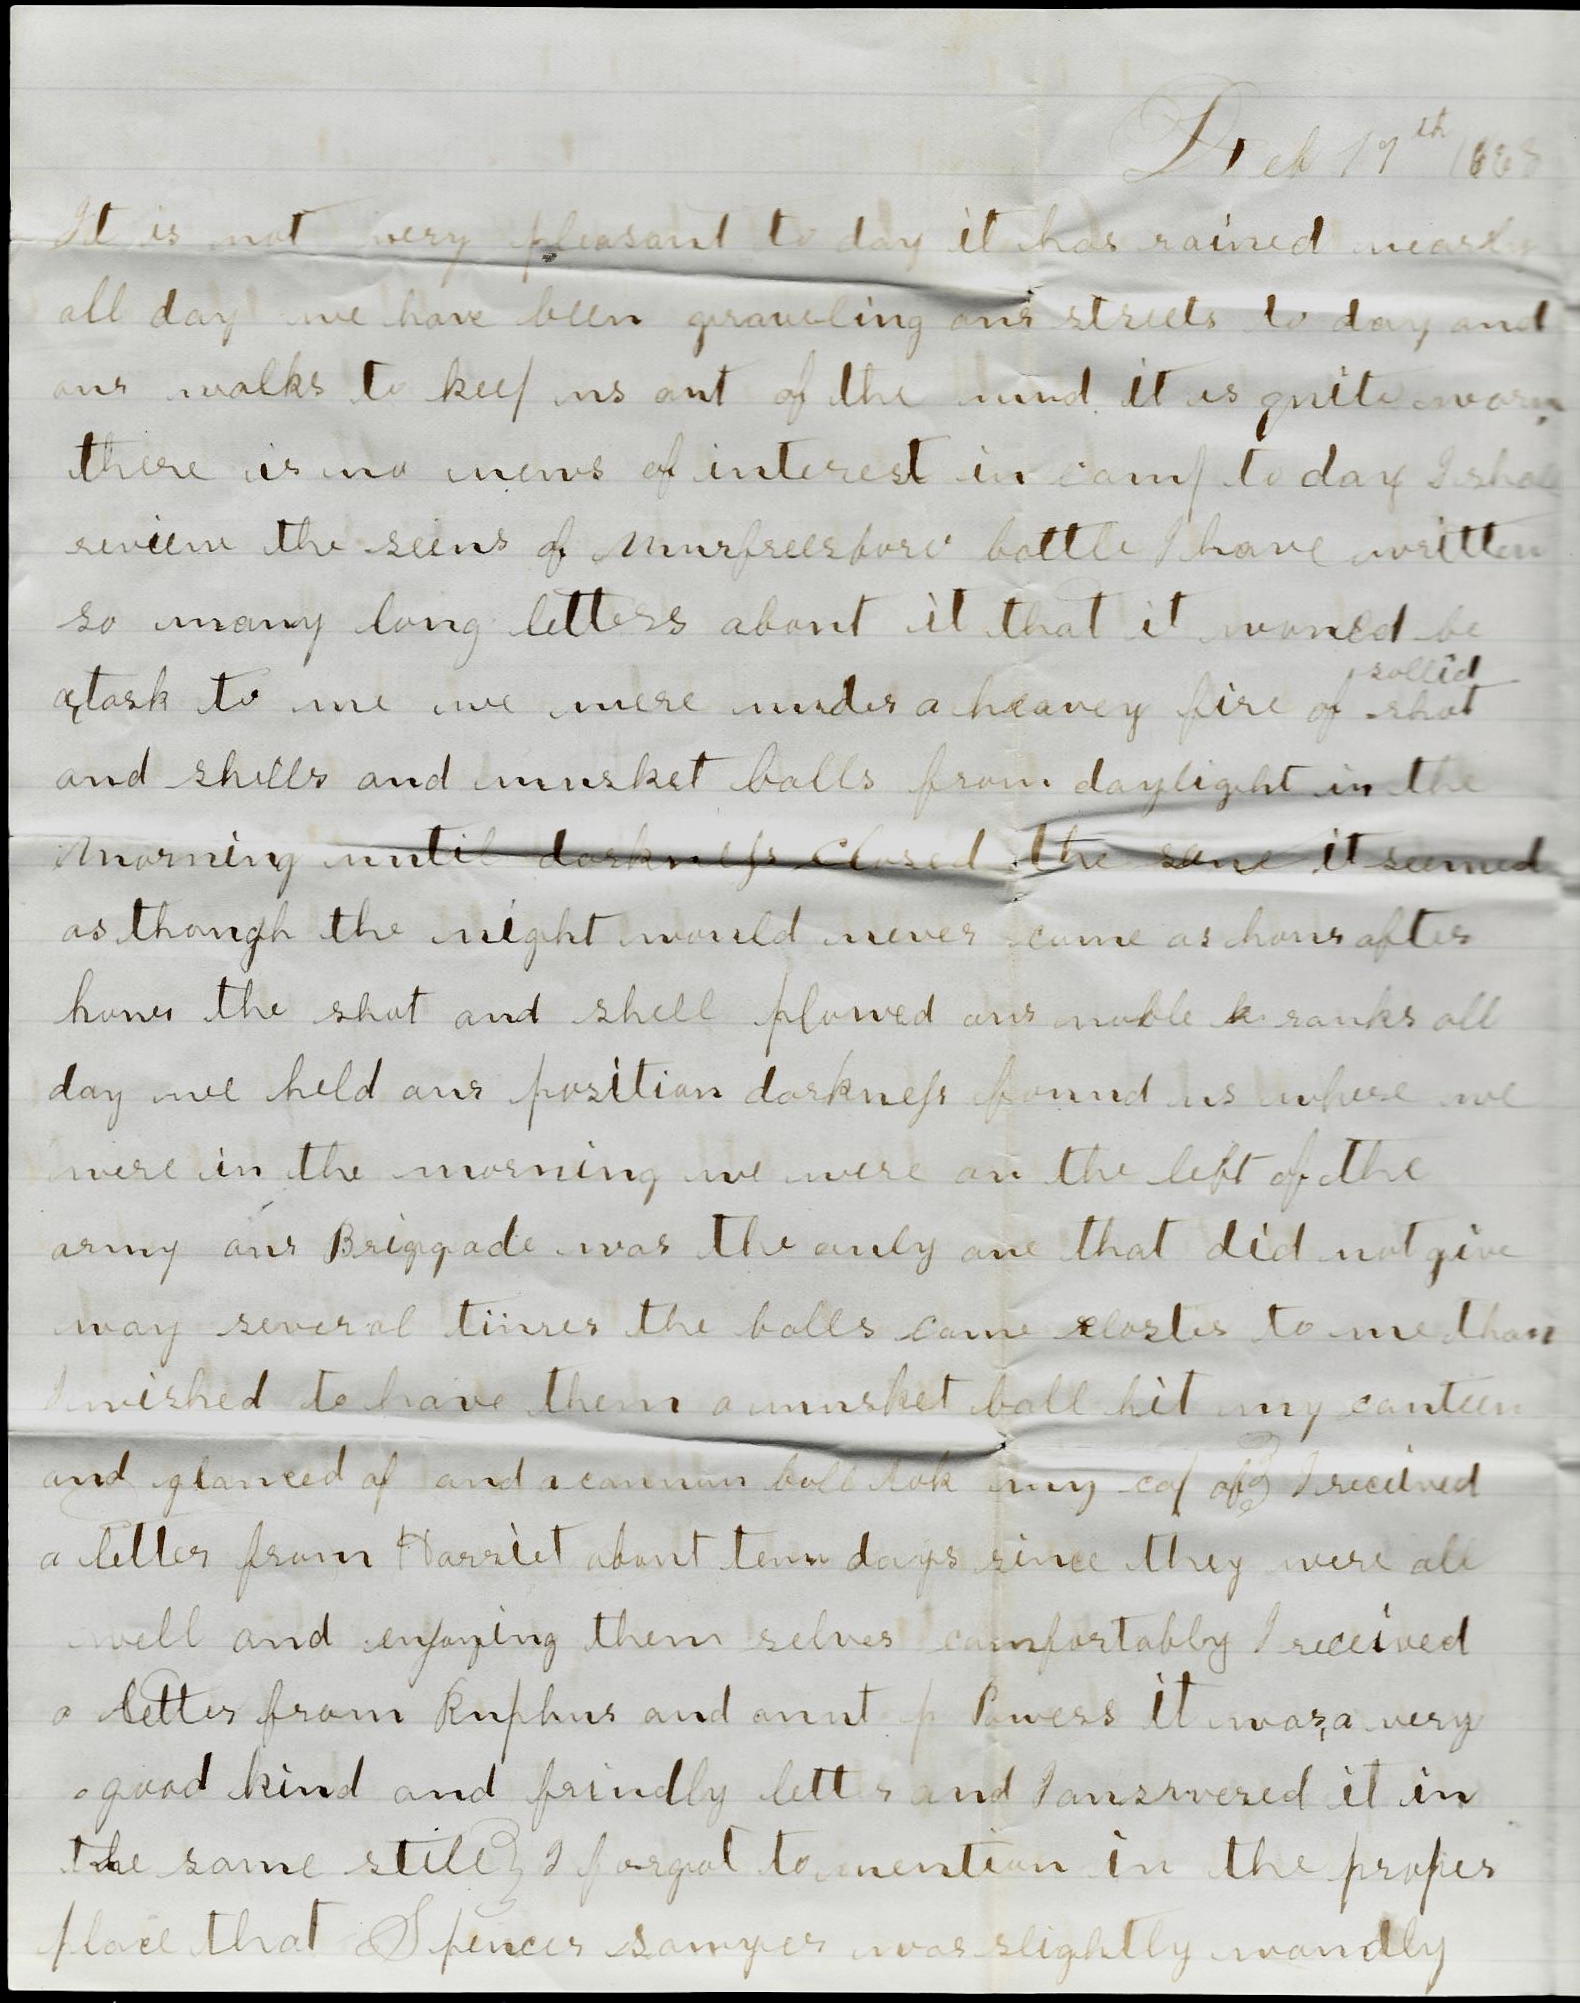 Feb 17th 1863
It is not very pleasant to day it has rained nearly
all day we have been graveling our streets to day and
our walks to keep us out of the mud it is quite warm
there is no news of interest in camp to day I shall
review the seens of Murfreesboro battle I have written
so many long letters about it that it would be
a task to me we were under a heavey fire of sollid shot
and shells and musket balls from daylight in the
Morning until darkness closed the sene it seemed
as though the night would never come as hour after
hour the shot and shell plowed our noble ranks all
day we held our position darkness found us where we
were in the morning we were on the left of the
army our Briggade was the only one that did not give
way several times the balls came closter to me than
I wished to have them a musket ball hit my canteen
and glanced of and a cannon ball tok my cap of I received
a letter from Harriet about tenn days since they were all
well and enjoying them selves comfortably I received
a letter from Ruphus and aunt p Powers it was a very
good kind and frindly letter and I ansrwered it in
the same stile I forgot to mention in the proper
place that Spencer Sawyer was slightly wondly